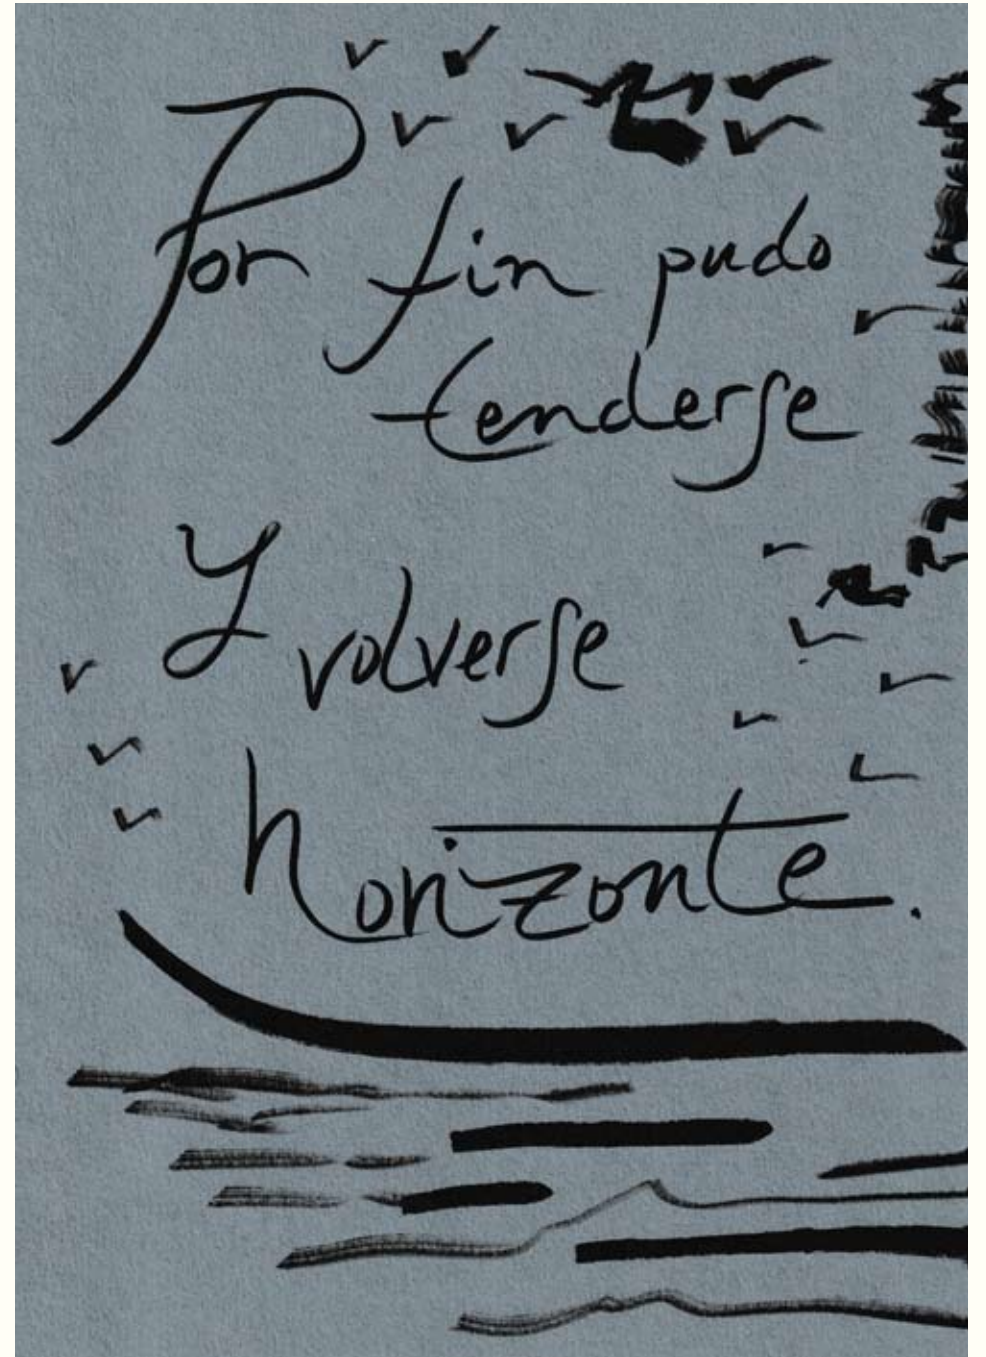 Por fin pudo
tenderse
Y volverse
horizonte.